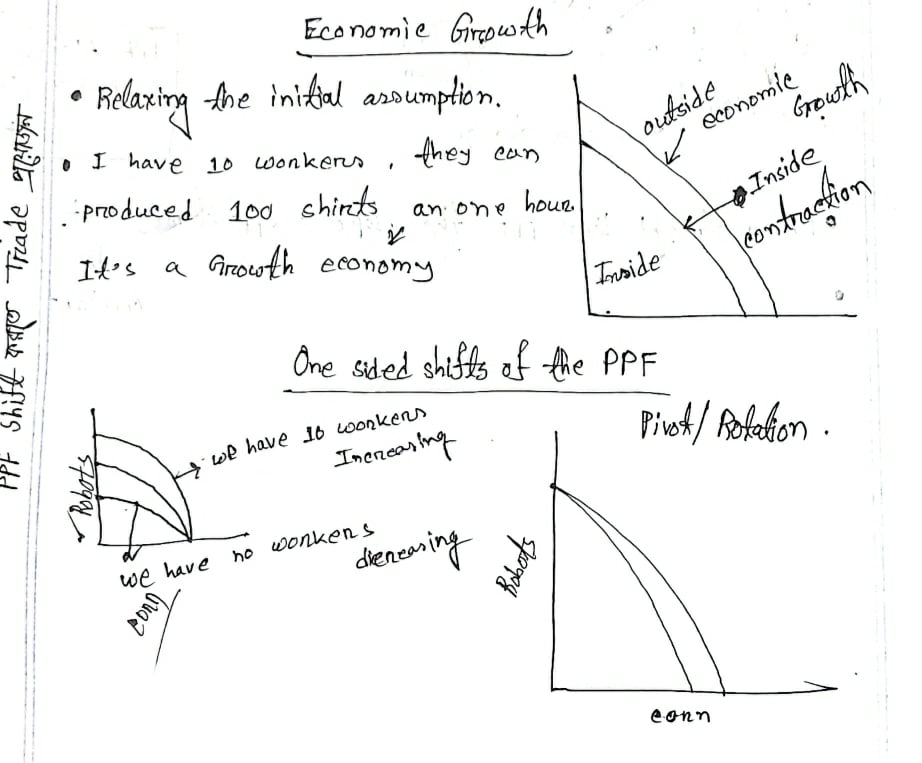 Economic Growth
• Relaxing the initial assumption.
• I have 10 workers, they can
produced 100 shirts an one hour
It's a Growth economy
outside
economic
Growth
Inside
contraction
Inside
PPF Shift করলে Trade
One sided shifts of the PPF
we have 10 workers
Increasing
Robots
we have no workers
dicreasing
corn
Pivot/Rotation.
Robots
corn